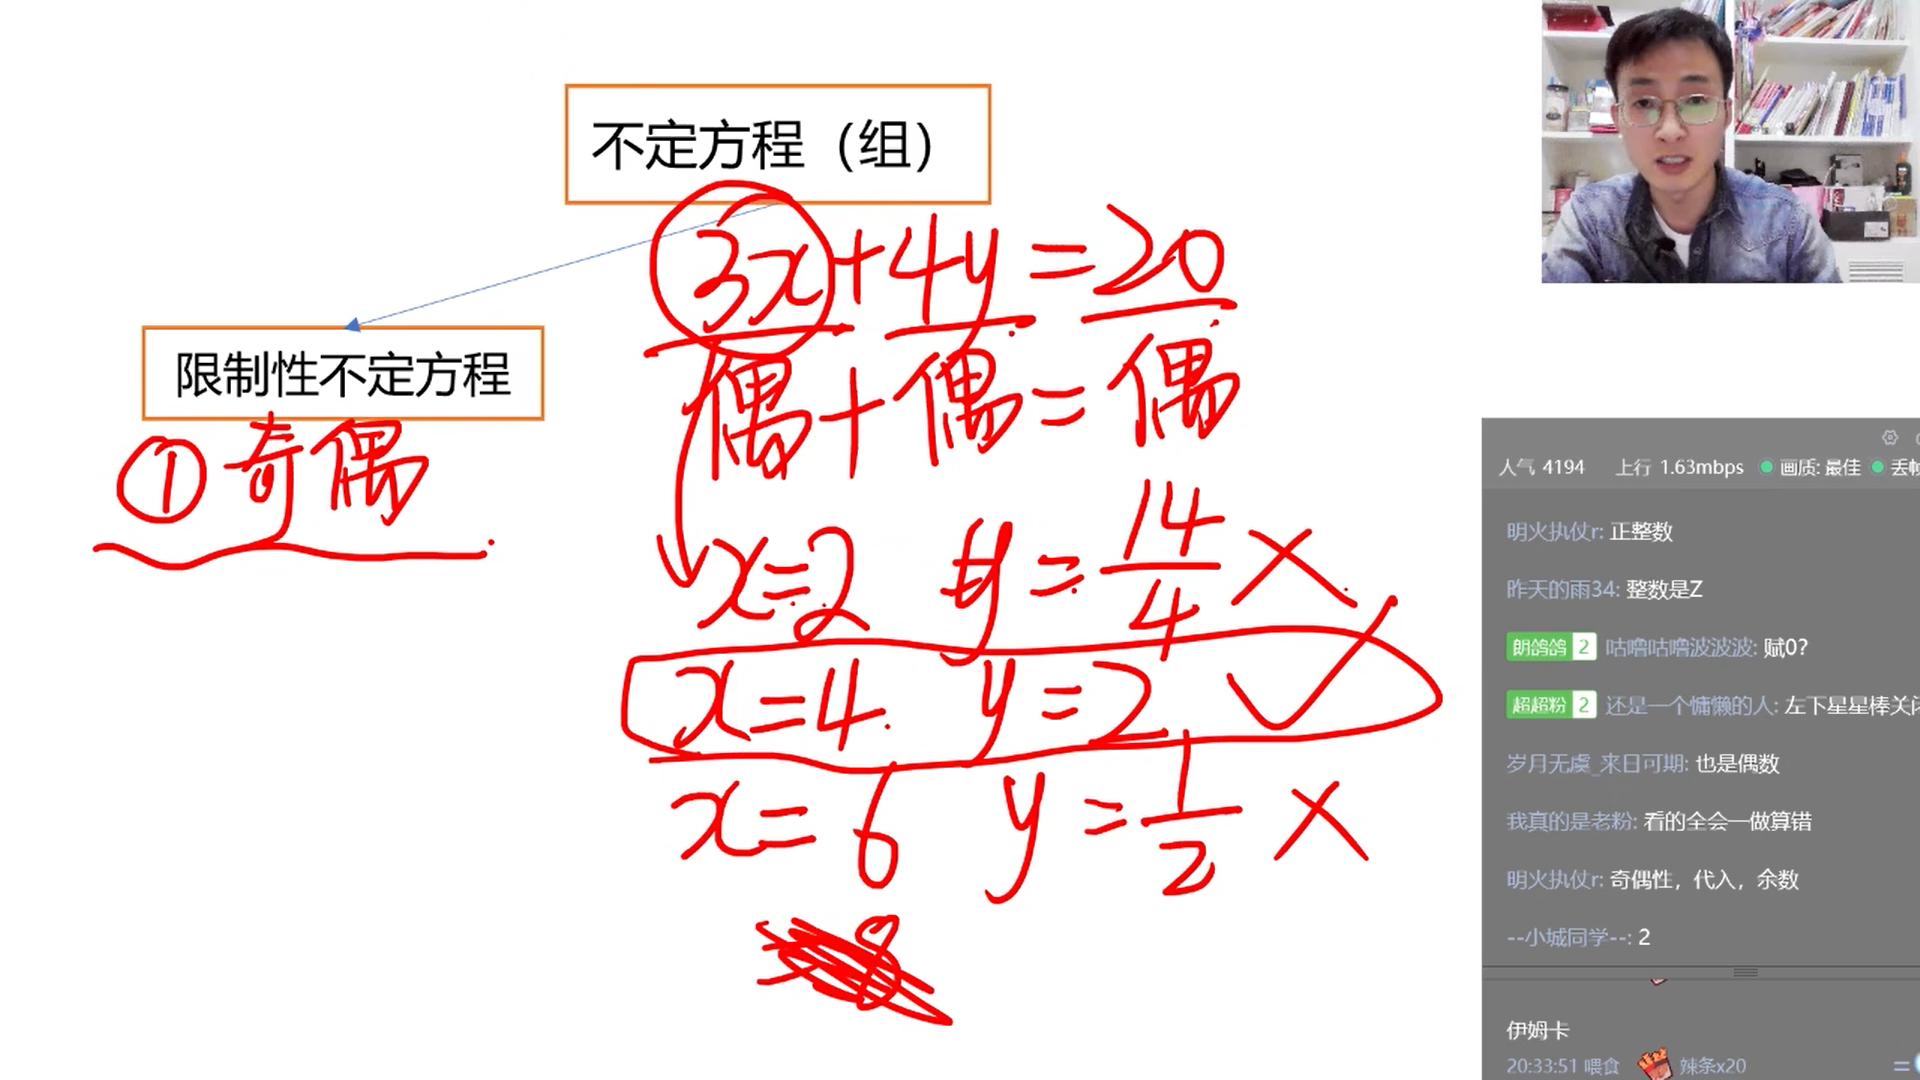 不定方程（组）
3x+4y=20
限制性不定方程
偶+偶=偶
①奇偶
x=2 y=14/4 ×
x=4 y=2 ✓
x=6 y=1/2 ×
人气 4194 上行 1.63mbps 画质: 最佳 丢帧
明火执仗r: 正整数
昨天的雨34: 整数是Z
朗鸽鸽 2 咕噜咕噜波波波: 赋0?
超超粉 2 还是一个慵懒的人: 左下星星棒关闭
岁月无虞_来日可期: 也是偶数
我真的是老粉: 看的全会一做算错
明火执仗r: 奇偶性，代入，余数
--小城同学--: 2
伊姆卡
20:33:51 喂食 辣条x20